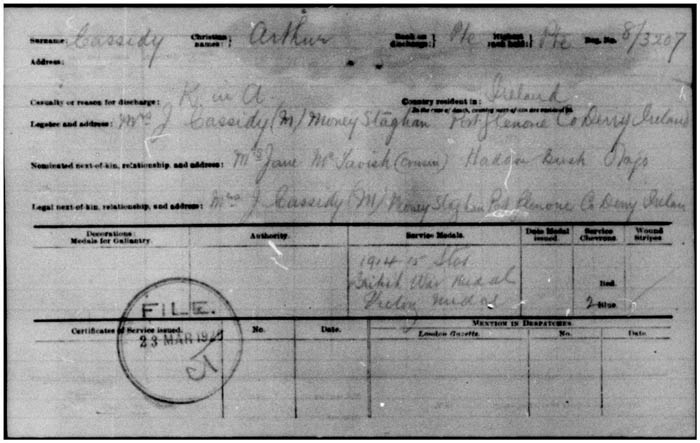 Surname: Cassidy Christian names: Arthur Rank on discharge: Pte Highest rank held: Pte Reg. No. 8/3207
Address:
Casualty or reason for discharge: K. in A. Country resident in: Ireland
In the case of death, country next-of-kin are resident in.
Legatee and address: Mrs J Cassidy (M) Money Staghan Port Glenone Co Derry Ireland
Nominated next-of-kin, relationship, and address: Mrs Jane McTavish (cousin) Haddon Bush
Legal next-of-kin, relationship, and address: Mrs J Cassidy (M) Money Staghan Port Glenone Co Derry Ireland
Decorations: Medals for Gallantry. Authority. Service Medals. Date Medal issued. Service Chevrons. Wound Stripes
1914 15 Star
British War Medal Red.
Victory Medal 2 Blue
FILE.
23 MAR
Certificates of Service issued. No. Date. MENTION IN DESPATCHES.
London Gazette. No. Date.